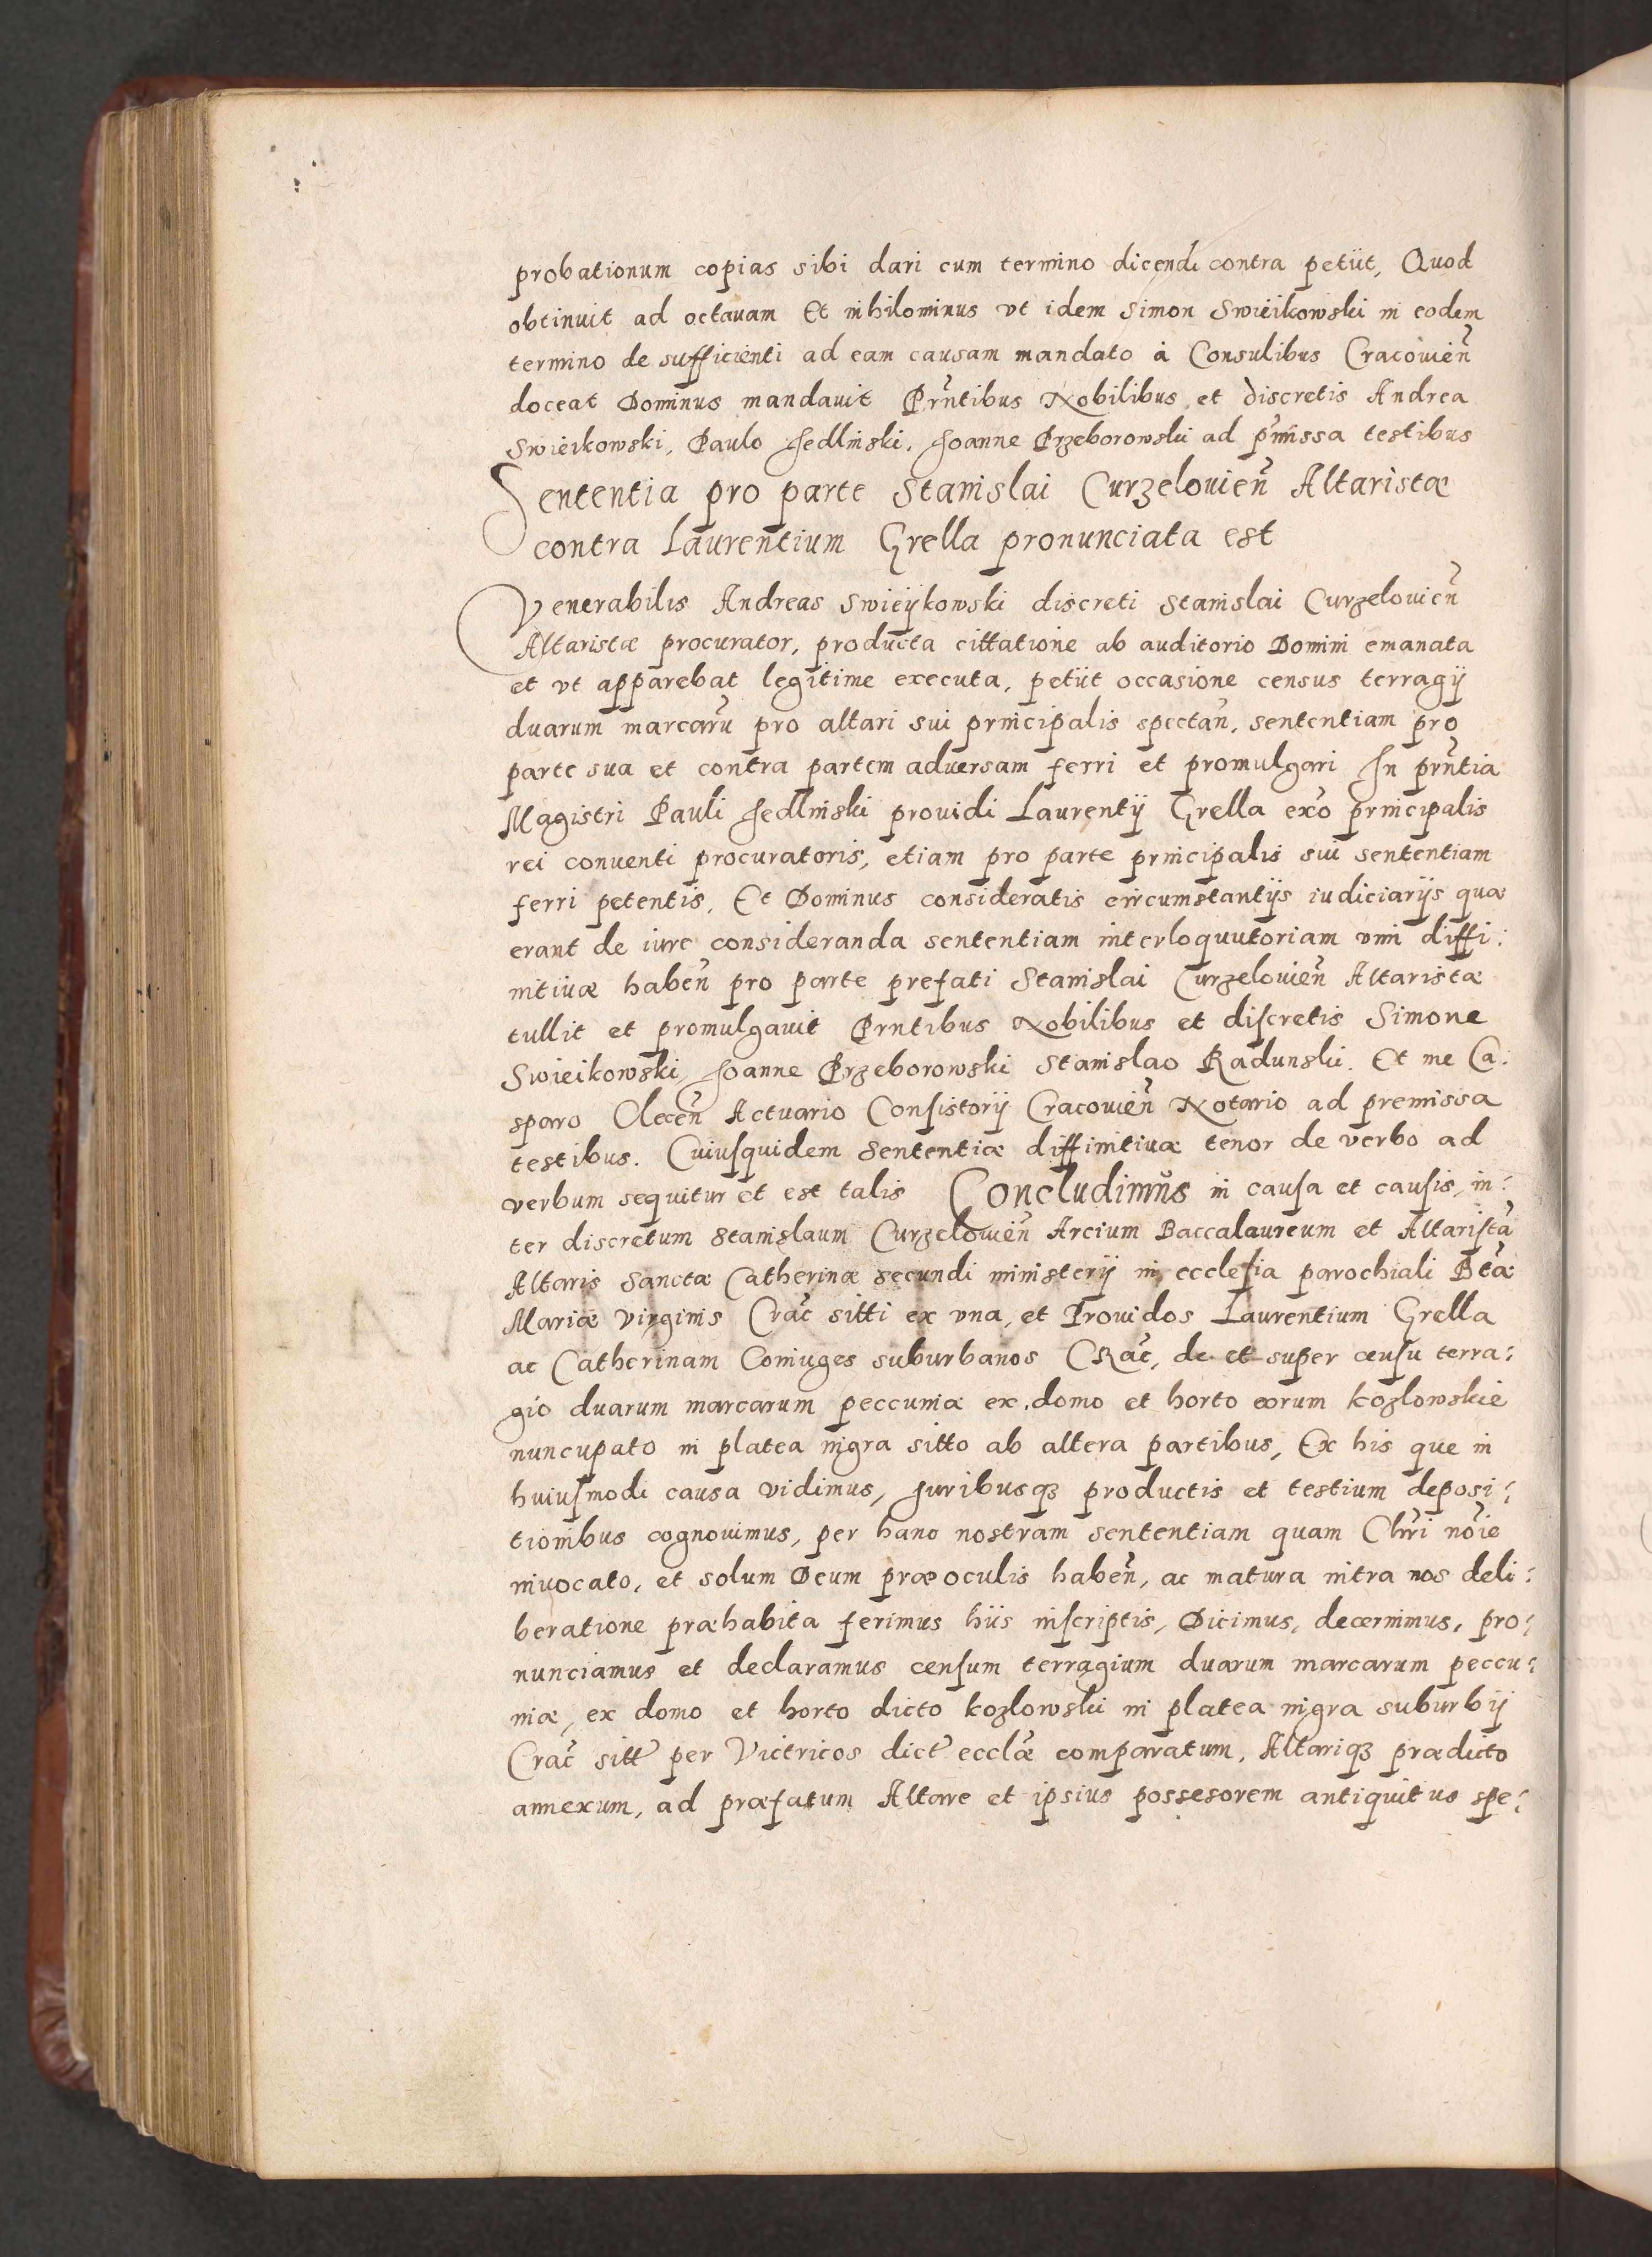 probationum copias sibi dari cum termino dicendi contra petiit, Quod
obtinuit ad octauam Et nihilominus vt idem Simon Swieikowski in eodem
termino de sufficienti ad eam causam mandato à Consulibus Cracouien̄
doceat Dominus mandauit Prn̄tibus Nobilibus et discretis Andrea
Swieikowski, Paulo Jedlinski, Joanne Przeborowski ad p̄missa testibus
Sententia pro parte Stanislai Curzelouien̄ Altaristæ
contra Laurentium Grella pronunciata est
Venerabilis Andreas Swieykowski discreti Stanislai Curzelouien̄
Altaristæ procurator, producta cittatione ab auditorio Domini emanata
et vt apparebat legitime executa, petiit occasione census terragij
duarum marcarū pro altari sui principalis spectan̄, sententiam pro
parte sua et contra partem aduersam ferri et promulgari In prn̄tia
Magistri Pauli Jedlinski prouidi Laurentij Grella exō principalis
rei conuenti procuratoris, etiam pro parte principalis sui sententiam
ferri petentis, Et Dominus consideratis circumstantijs iudiciarijs quæ
erant de iure consideranda sententiam interloquutoriam vim diffi:
nitiuæ haben̄ pro parte prefati Stanislai Curzelouien̄ Altaristæ
tullit et promulgauit Prntibus Nobilibus et discretis Simone
Swieikowski, Joanne Przeborowski Stanislao Radunski. Et me Ca:
sparo Olecen̄ Actuario Consistorij Cracouien̄ Notario ad premissa
testibus. Cuiusquidem sententiæ diffinitiuæ tenor de verbo ad
verbum sequitur et est talis Concludimus in causa et causis, in:
ter discretum Stanislaum Curzelouien̄ Arcium Baccalaureum et Altaristā
Altaris Sanctæ Catherinæ secundi ministerij in ecclesia parochiali Btǣ
Mariæ Virginis Crac̄ sitti ex vna, et Prouidos Laurentium Grella
ac Catherinam Coniuges suburbanos CRac̄, de et super censu terra:
gio duarum marcarum peccuniæ ex domo et horto eorum kozlowskie
nuncupato in platea nigra sitto ab altera partibus, Ex his que in
huiusmodi causa vidimus, Juribusqꝫ productis et testium deposi:
tionibus cognouimus, per hanc nostram sententiam quam Chrī nōie
inuocato, et solum Deum præ oculis haben̄, ac matura intra nos deli:
beratione præhabita ferimus hiis inscriptis, Dicimus, decernimus, pro:
nunciamus et declaramus censum terragium duarum marcarum peccu:
niæ, ex domo et horto dicto kozlowski in platea nigra suburbij
Crac̄ sitt̄ per Victricos dict̄ ecclǣ comparatum, Altariqꝫ prædicto
annexum, ad præfatum Altare et ipsius possesorem antiquitus spe: